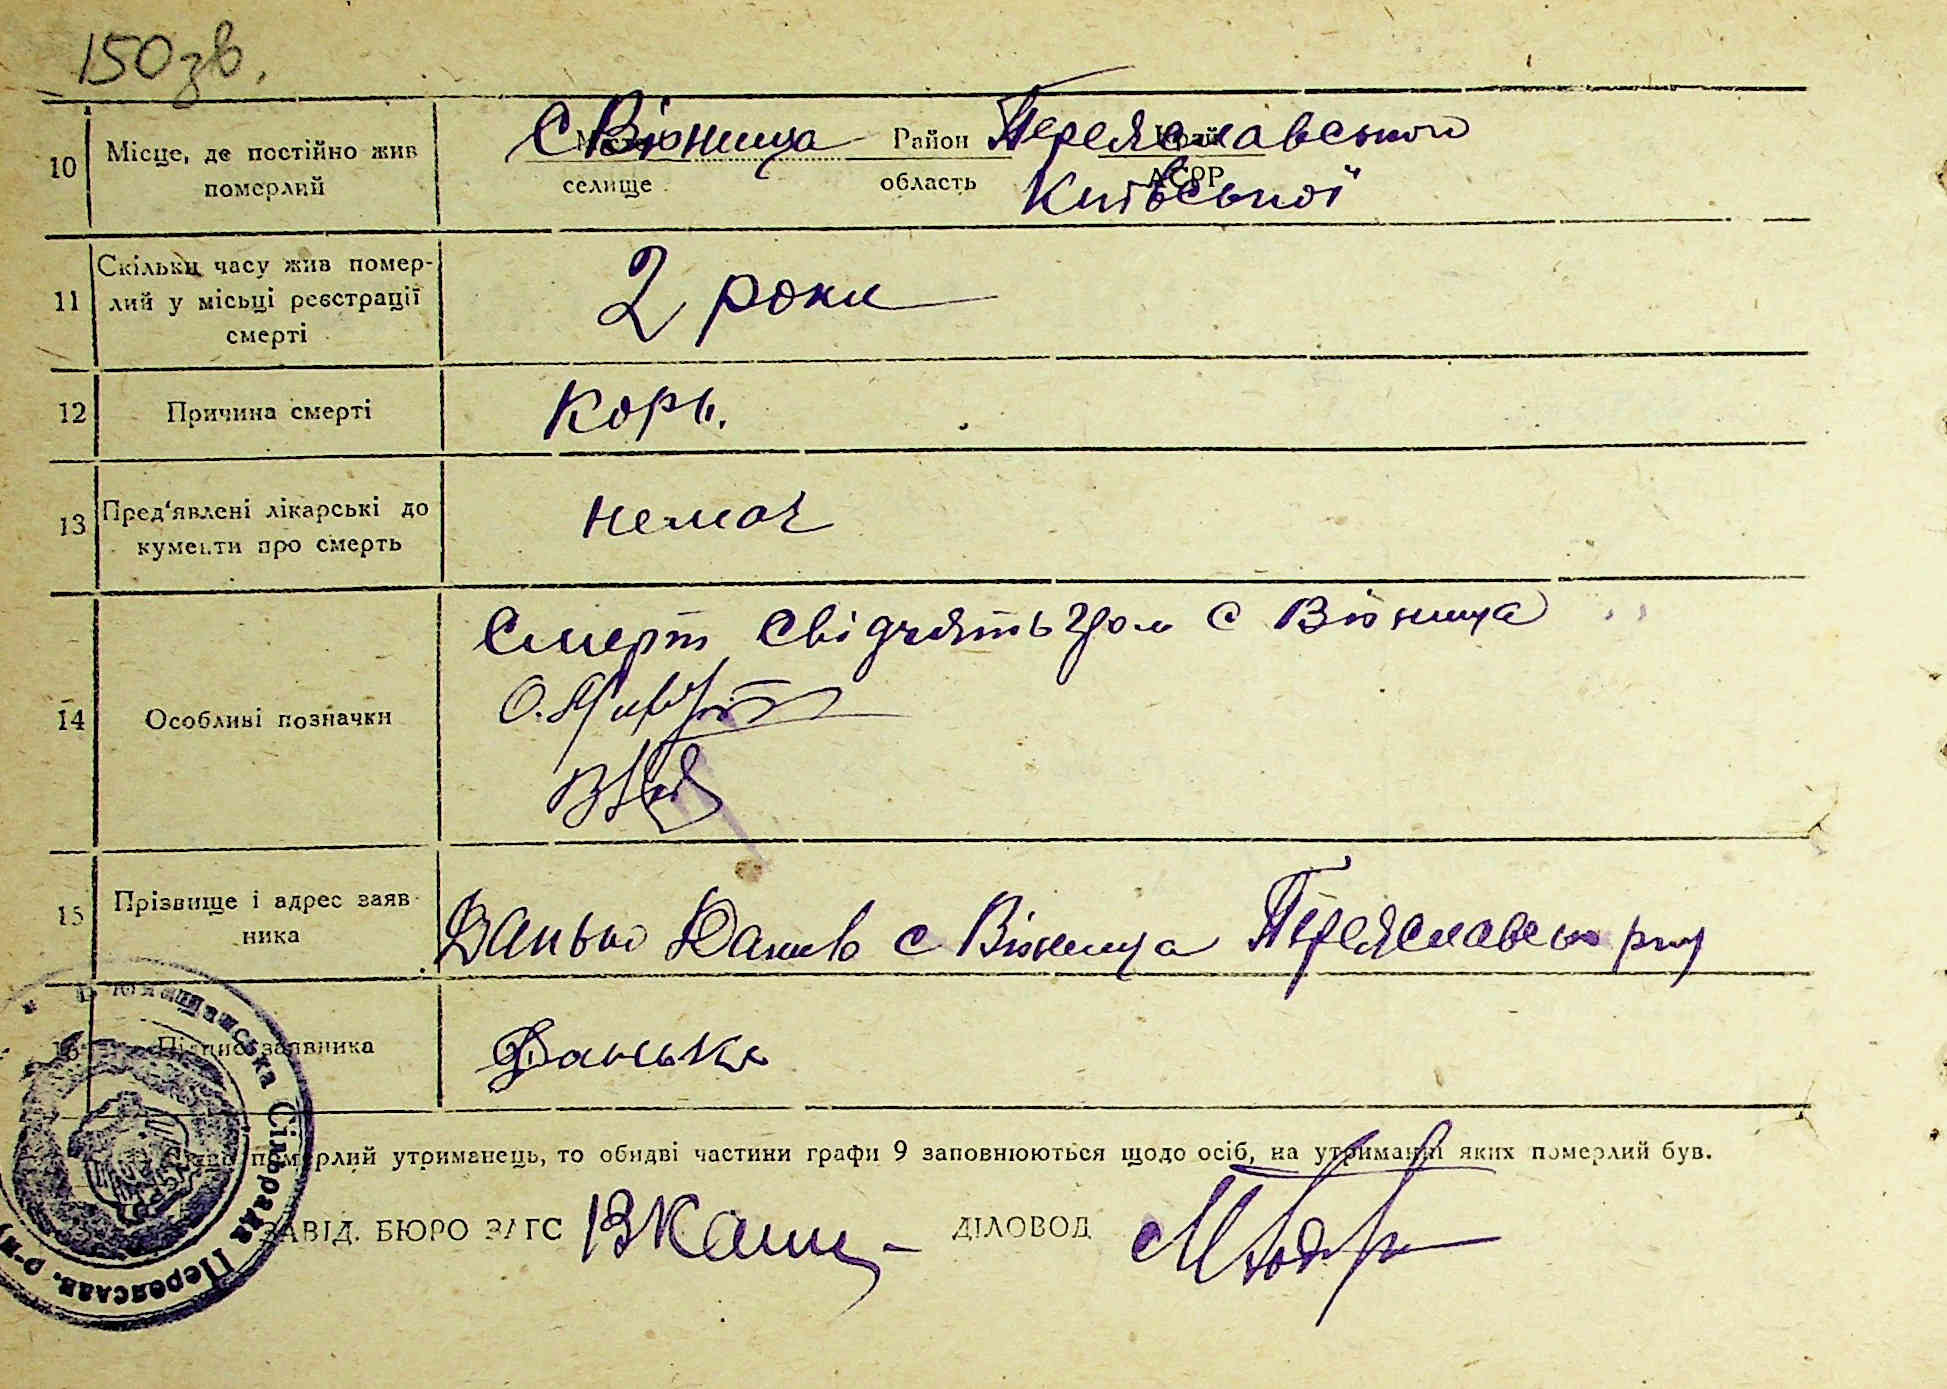 150 зв.
10 Місце, де постійно жив померлий
с Вюнища Район Переяславського
селище область АСРР Київської
11 Скільки часу жив помер-
лий у місьці реєстрації
смерті
2 роки
12 Причина смерті Корь.
13 Пред'явлені лікарські до
кументи про смерть
немає
Смерт свідчять гром с Вюнища
14 Особливі позначки
15 Прізвище і адрес заяв-
ника
Данько с Вюнища Переяславсько р-ну
Підпис заявника Данько
померлий утриманець, то обидві частини графи 9 заповнюються щодо осіб, на утриманні яких померлий був.
ЗАВІД. БЮРО ЗАГС ДІЛОВОД
Вюнищанська Сільрада Переяслав. р-ну